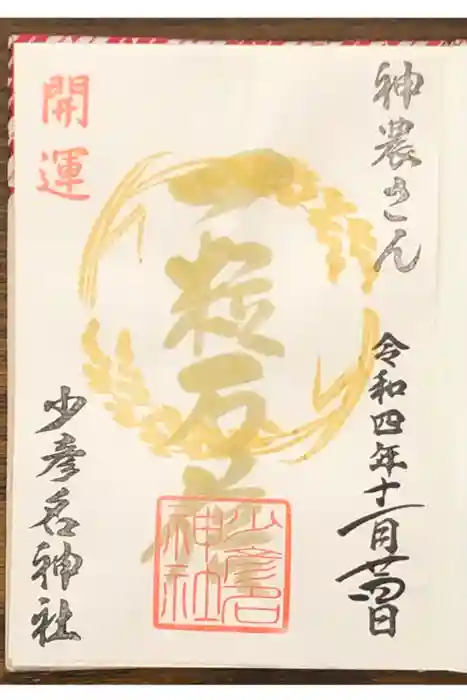 神農さん
令和四年十一月廿四日
一粒
開運
少彦名神社
少彦名
神社